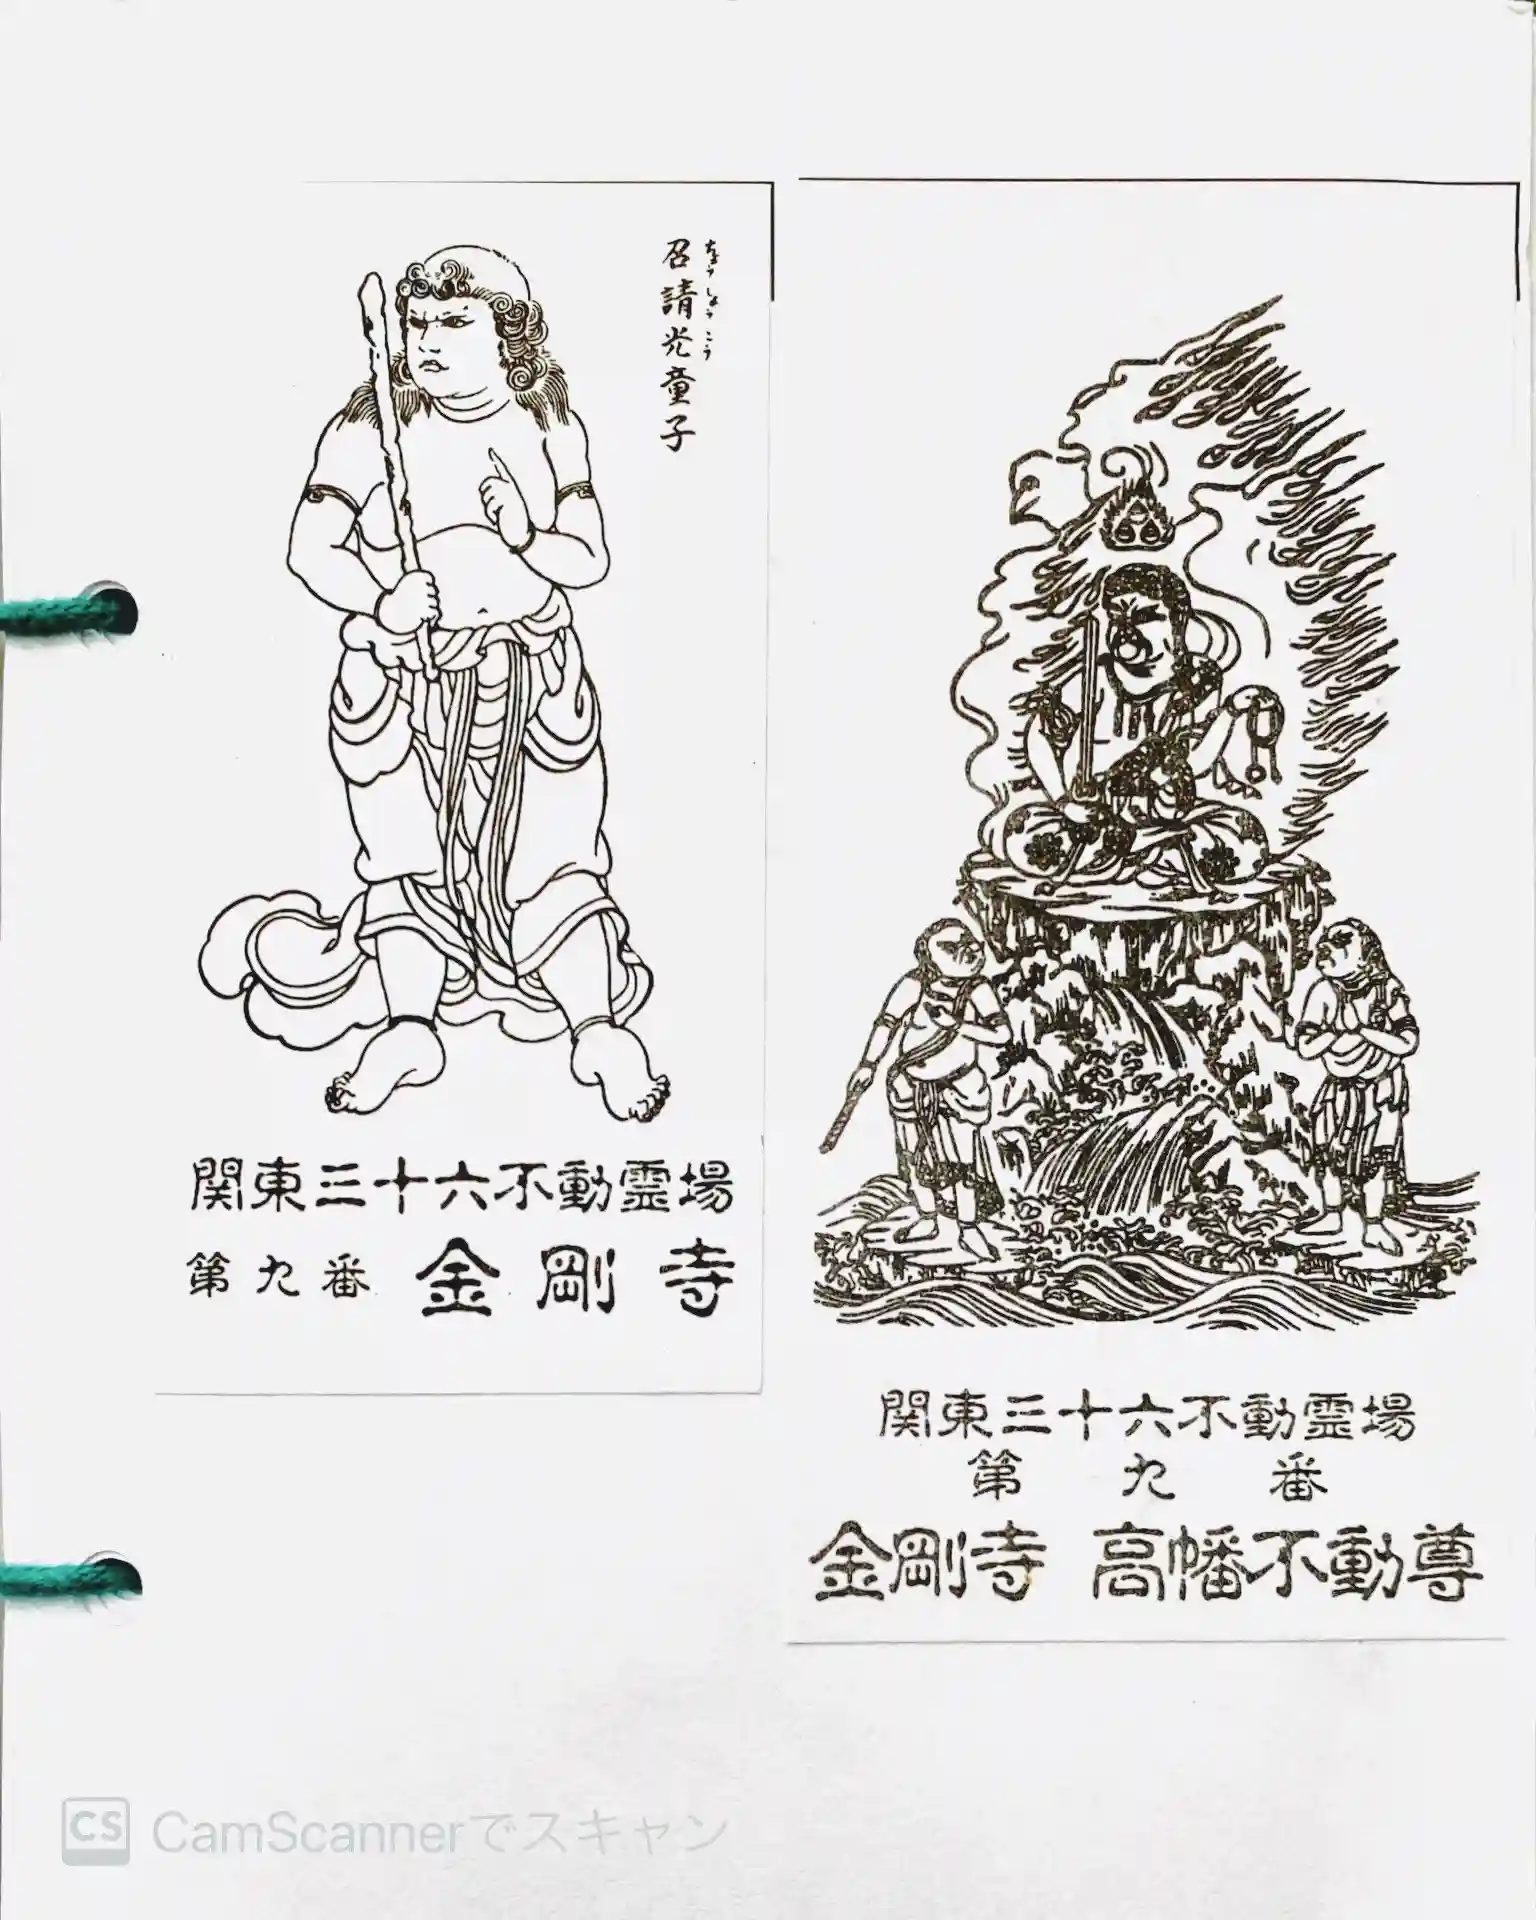 召請光童子
ちょうしょうこう
関東三十六不動霊場
第九番 金剛寺
関東三十六不動霊場
第九番
金剛寺 高幡不動尊
CS CamScannerでスキャン